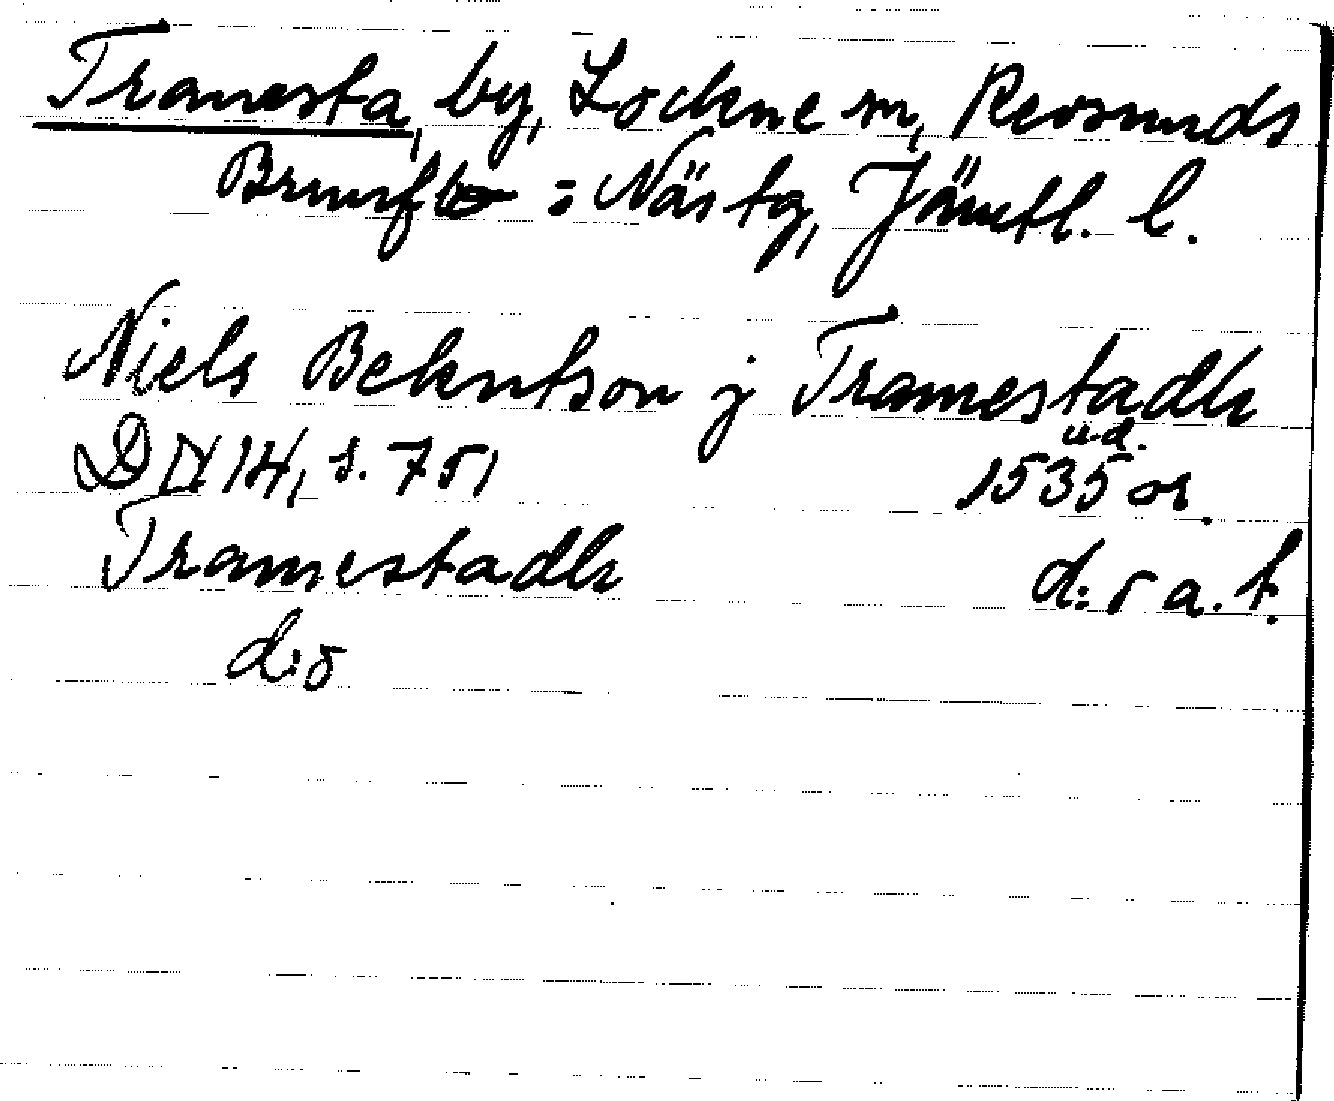 Tranesta, by, Lockne sn, Revsunds
Brunflo = Näs tg, Jämtl. l.
Niels Bekntson j Tramestadh
DN 14, s. 751 u.d. 1535 or.
Tramestadh d:o a. t.
d:o